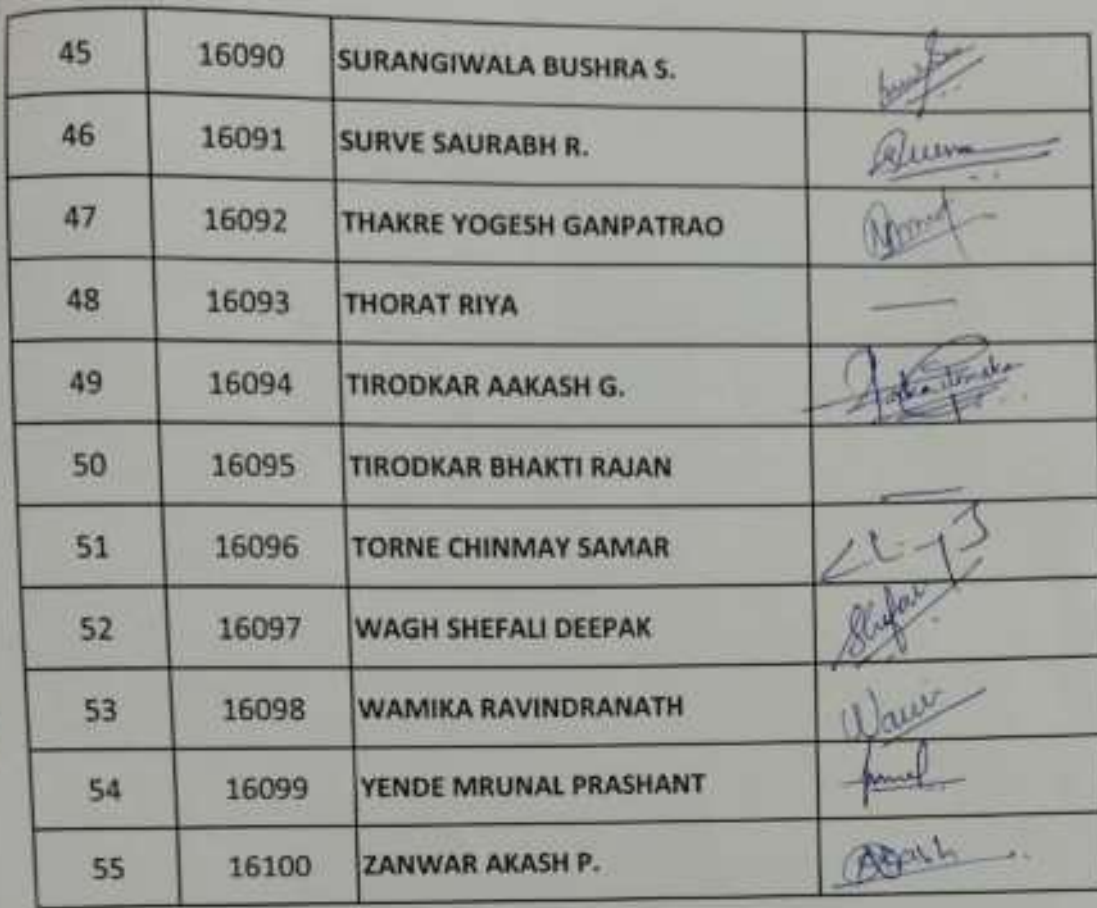 45 16090 SURANGIWALA BUSHRA S.
46 16091 SURVE SAURABH R.
47 16092 THAKRE YOGESH GANPATRAO
48 16093 THORAT RIYA —
49 16094 TIRODKAR AAKASH G.
50 16095 TIRODKAR BHAKTI RAJAN —
51 16096 TORNE CHINMAY SAMAR
52 16097 WAGH SHEFALI DEEPAK
53 16098 WAMIKA RAVINDRANATH
54 16099 YENDE MRUNAL PRASHANT
55 16100 ZANWAR AKASH P.